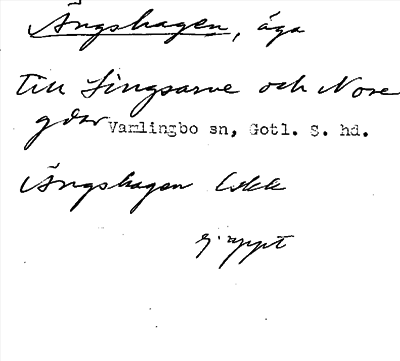 Ängshagen, äga
till Singsarve och Nore
gdar Vamlingbo sn, Gotl. S. hd.
Ängshagen
ej uppt